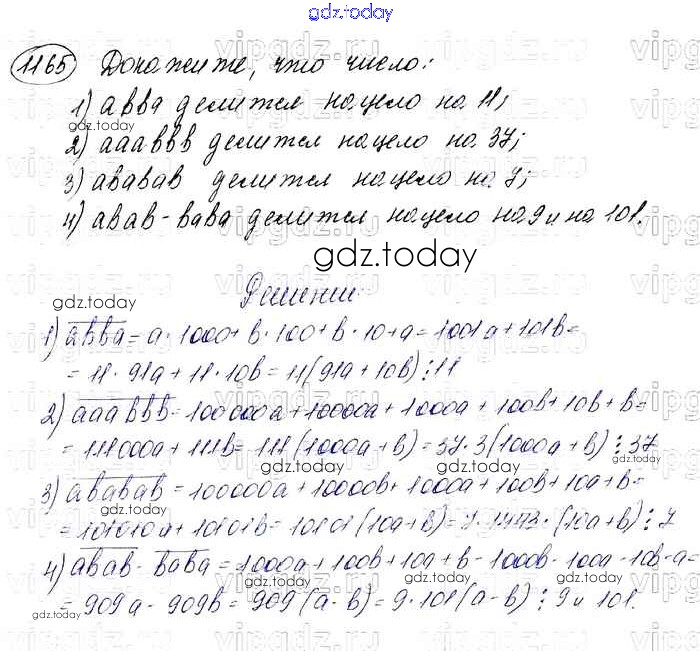 gdz.today
1165 Докажите, что число:
1) abba делится нацело на 11;
gdz.today
2) aaabbb делится нацело на 37;
3) ababab делится нацело на 7;
4) abab - baba делится нацело на 9 и на 101.
gdz.today
Решение:
gdz.today
1) abba = a·1000 + b·100 + b·10 + a = 1001a + 101b =
= 11·91a + 11·10b = 11(91a + 10b) ⋮ 11
2) aaabbb = 100000a + 10000a + 1000a + 100b + 10b + b =
= 111000a + 111b = 111(1000a + b) = 37·3(1000a + b) ⋮ 37
gdz.today gdz.today
3) ababab = 100000a + 10000b + 1000a + 100b + 10a + b =
gdz.today
= 101010a + 10101b = 10101(10a + b) = 7·1443·(10a + b) ⋮ 7
4) abab - baba = 1000a + 100b + 10a + b - 1000b - 100a - 10b - a =
gdz.today gdz.today
= 909a - 909b = 909(a - b) = 9·101(a - b) ⋮ 9 и 101.
gdz.today gdz.today
vipgdz.ru